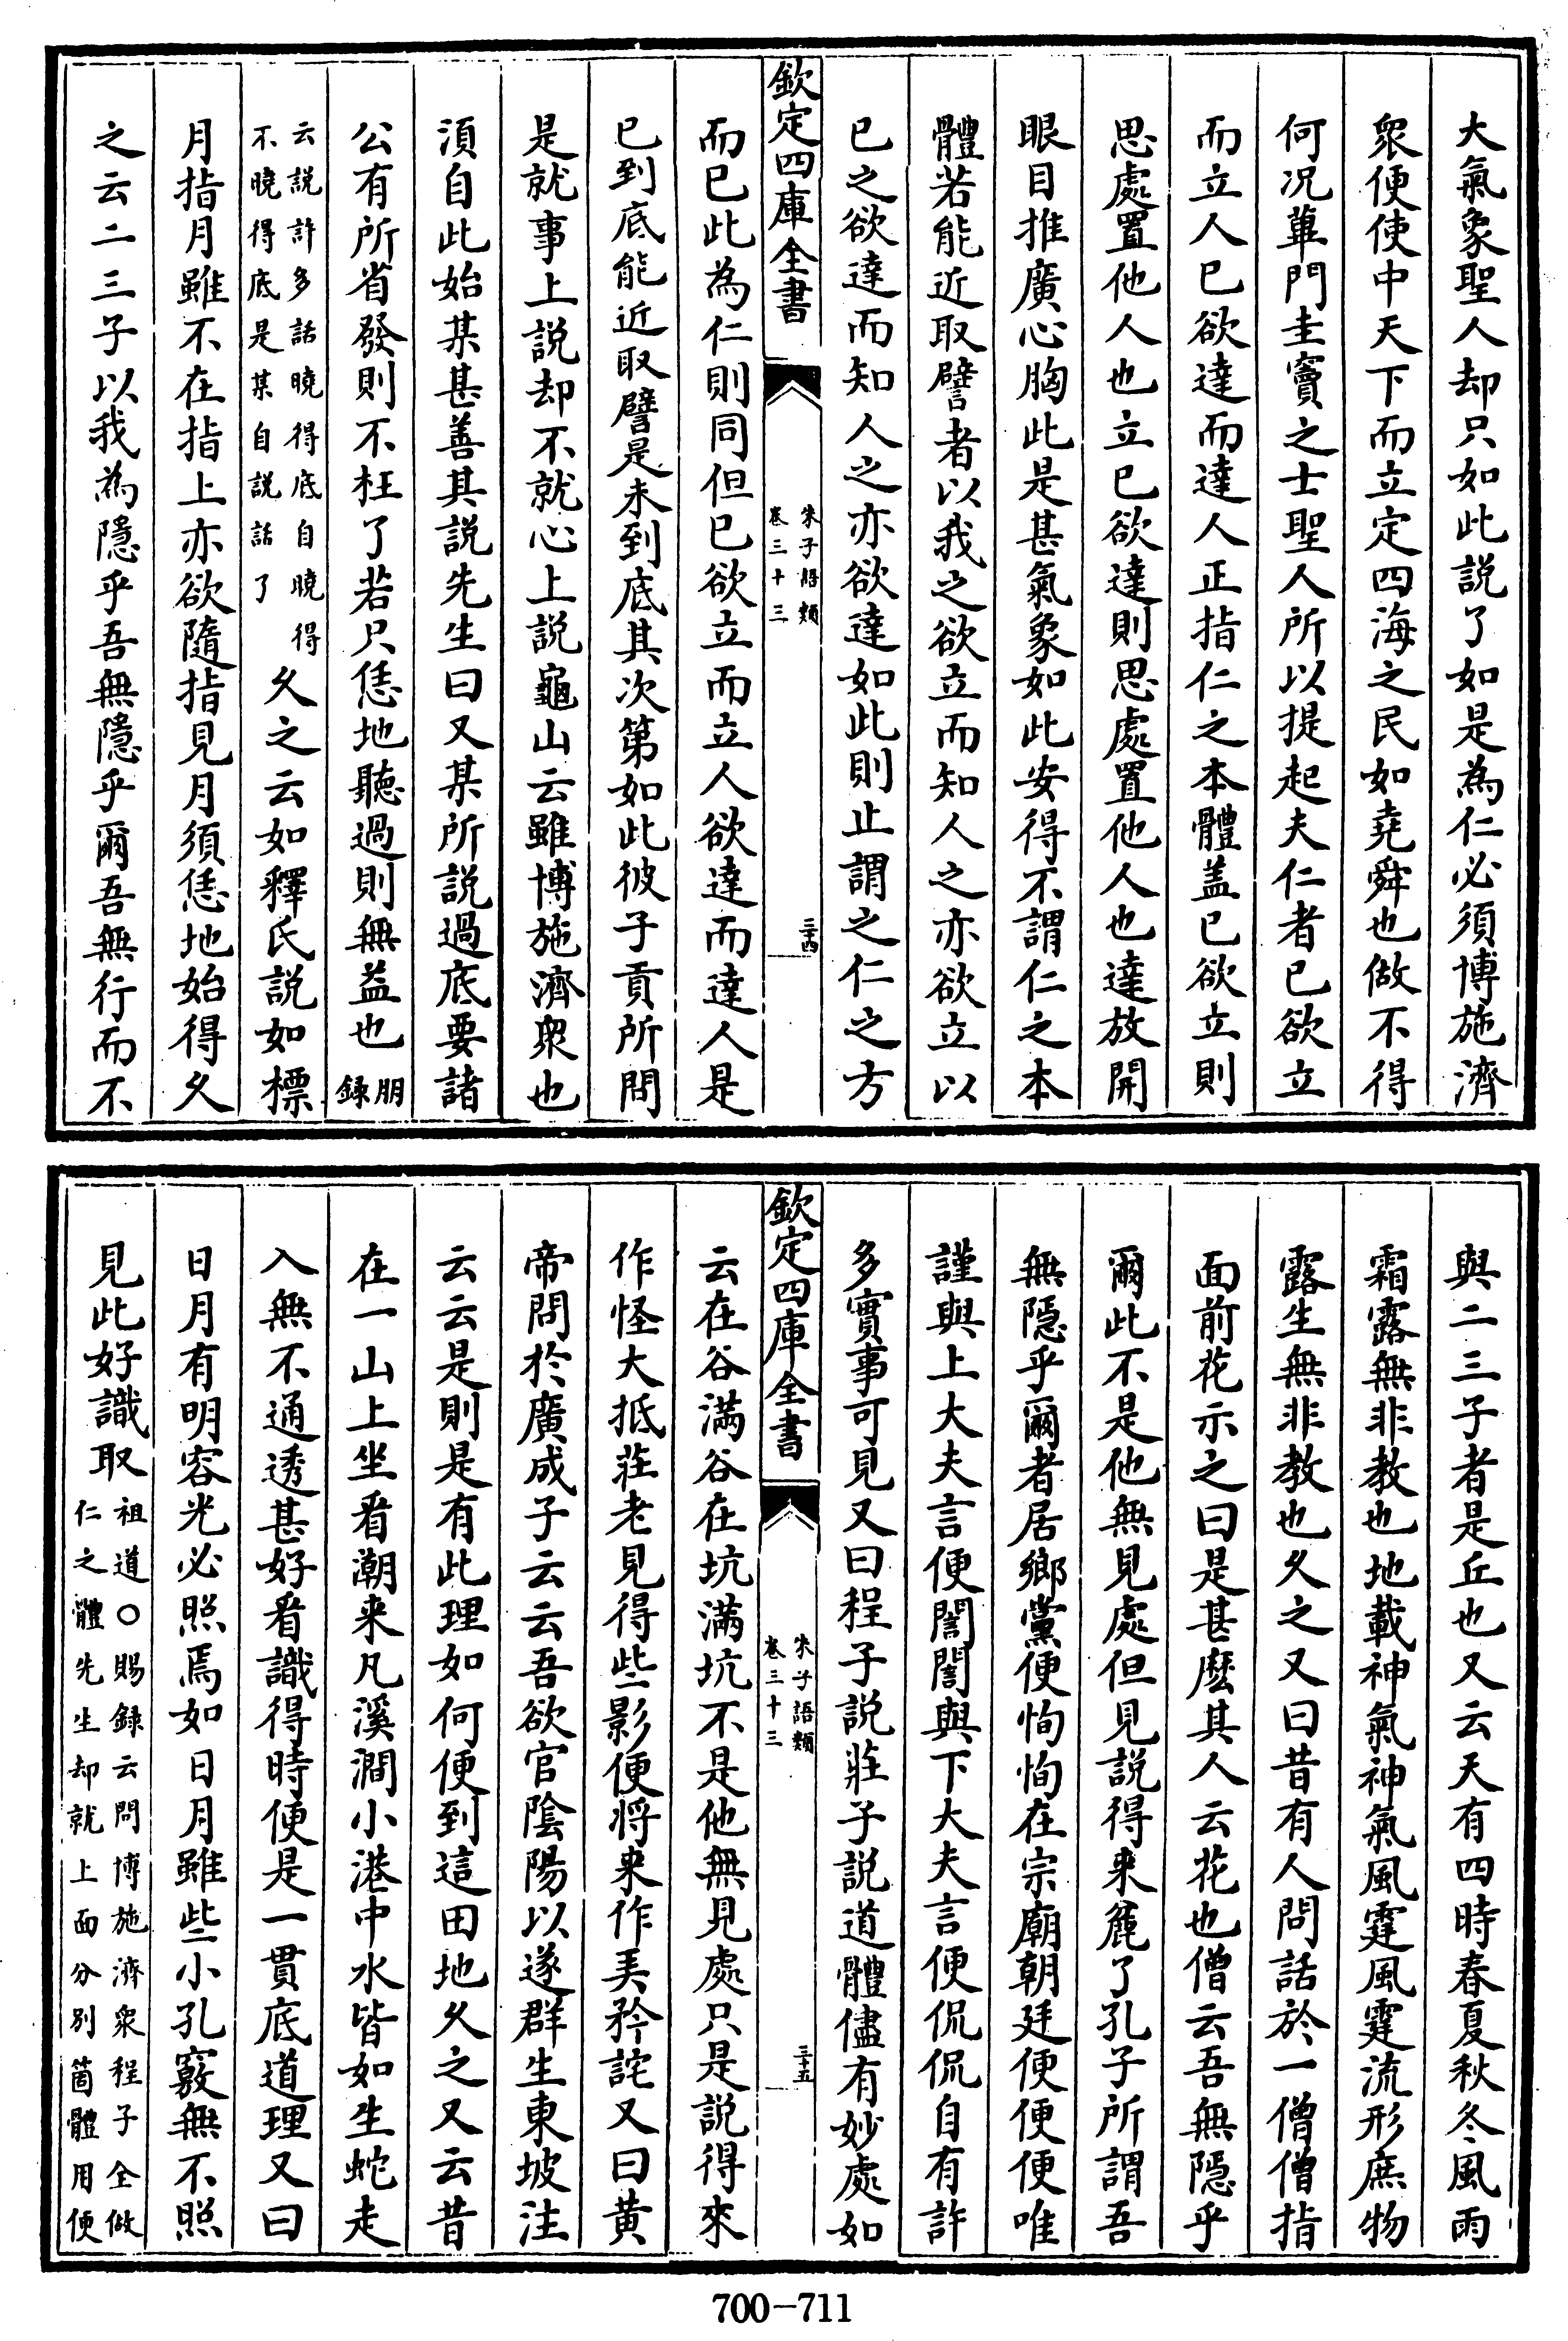 大氣象聖人却只如此説了如是為仁必須博施濟
衆便使中天下而立定四海之民如堯舜也做不得
何况蓽門圭竇之士聖人所以提起夫仁者已欲立
而立人已欲達而達人正指仁之本體盖已欲立則
思處置他人也立已欲達則思處置他人也達放開
眼目推廣心胸此是甚氣象如此安得不謂仁之本
體若能近取譬者以我之欲立而知人之亦欲立以
已之欲達而知人之亦欲達如此則止謂之仁之方
欽定四庫全書
朱子語類
卷三十三
三十四
而已此為仁則同但已欲立而立人欲達而達人是
已到底能近取譬是未到底其次第如此彼子貢所問
是就事上説却不就心上説龜山云雖博施濟衆也
須自此始某甚善其説先生曰又某所説過底要諸
公有所省發則不枉了若只恁地聽過則無益也朋
録
云説許多話曉得底自曉得
不曉得底是某自説話了
久之云如釋氏説如標
月指月雖不在指上亦欲隨指見月須恁地始得久
之云二三子以我為隱乎吾無隱乎爾吾無行而不
與二三子者是丘也又云天有四時春夏秋冬風雨
霜露無非教也地載神氣神氣風霆風霆流形庶物
露生無非教也久之又曰昔有人問話於一僧僧指
面前花示之曰是甚麽其人云花也僧云吾無隱乎
爾此不是他無見處但見説得来麄了孔子所謂吾
無隱乎爾者居鄉黨便恂恂在宗廟朝廷便便便唯
謹與上大夫言便誾誾與下大夫言便侃侃自有許
多實事可見又曰程子説莊子説道體儘有妙處如
欽定四庫全書
朱子語類
卷三十三
三十五
云在谷滿谷在坑滿坑不是他無見處只是説得來
作怪大抵莊老見得些影便將来作弄矜詫又曰黄
帝問於廣成子云云吾欲官陰陽以遂群生東坡注
云云是則是有此理如何便到這田地久之又云昔
在一山上坐看潮来凡溪澗小港中水皆如生蛇走
入無不通透甚好看識得時便是一貫底道理又曰
日月有明容光必照焉如日月雖些小孔竅無不照
見此好識取
祖道○賜録云問博施濟衆程子全做
仁之體先生却就上面分别箇體用便
700-711